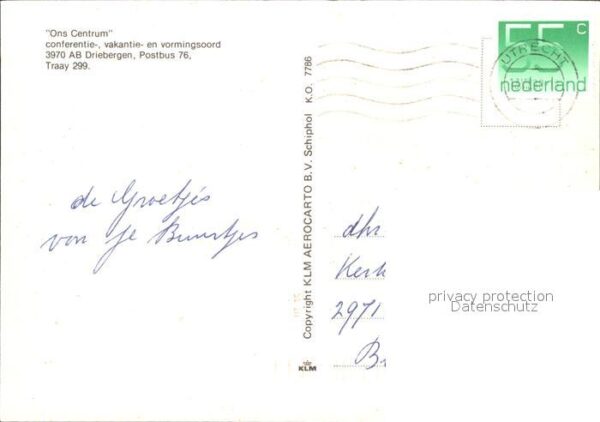 "Ons Centrum"
conferentie-, vakantie- en vormingsoord
3970 AB Driebergen, Postbus 76,
Traay 299.
55 c
nederland
UTRECHT
de Groetjes
van je Buurtjes
Copyright KLM AEROCARTO B.V. Schiphol K.O. 7786
KLM
dhr
Kerk
2971
privacy protection
Datenschutz